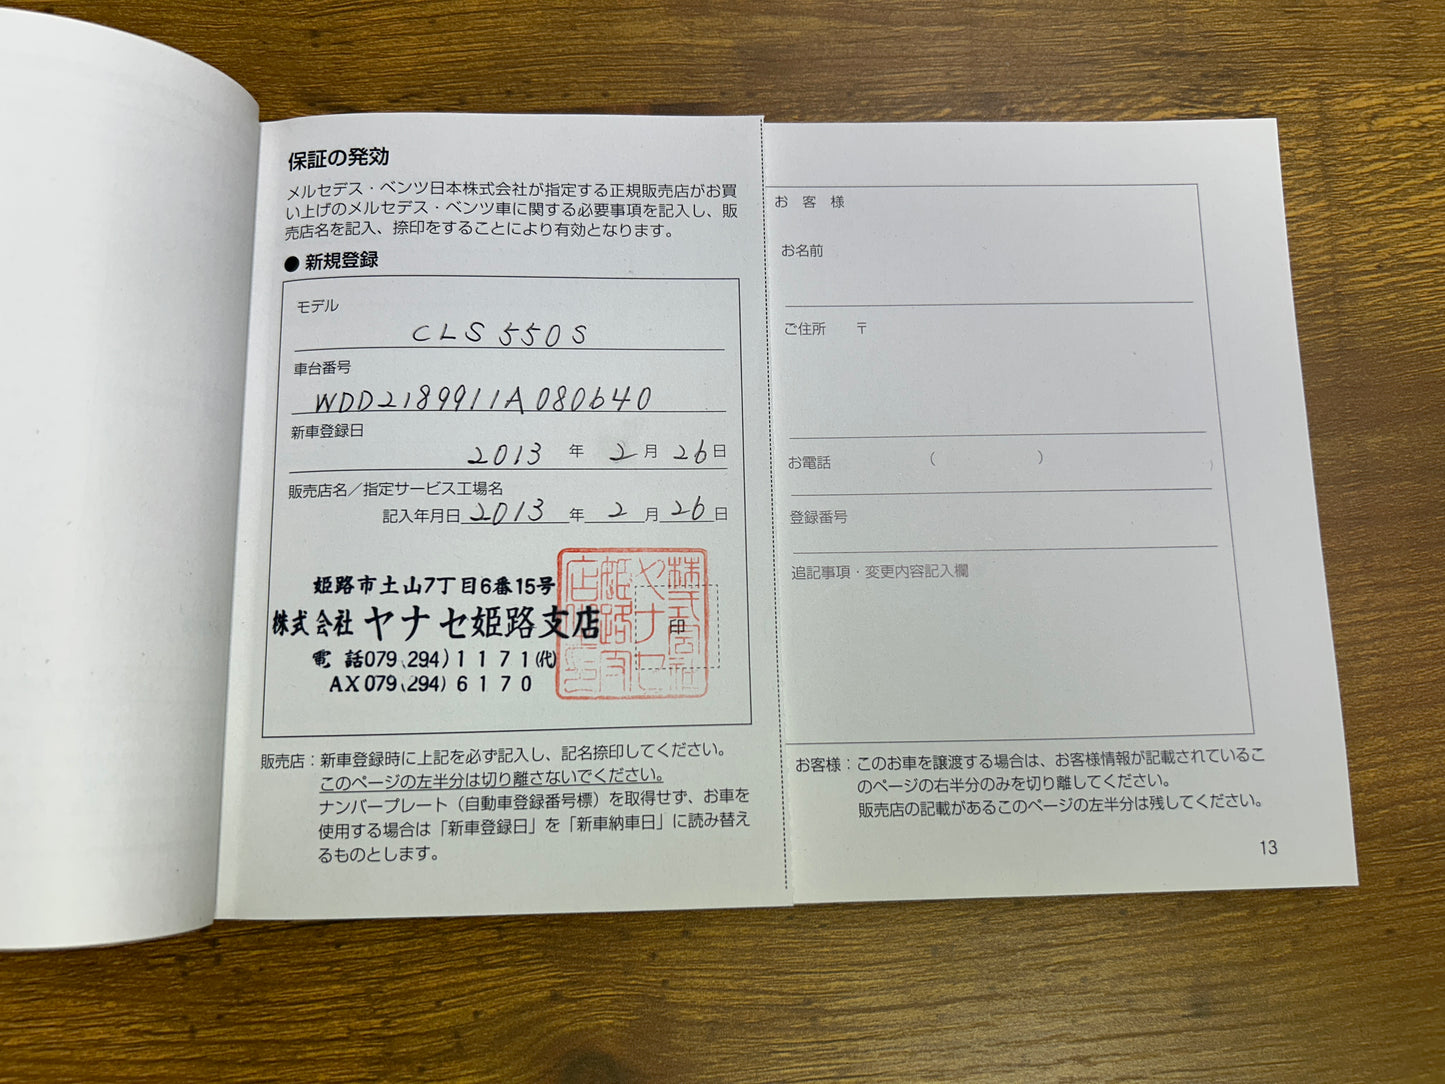 保証の発効
メルセデス・ベンツ日本株式会社が指定する正規販売店がお買
い上げのメルセデス・ベンツ車に関する必要事項を記入し、販
売店名を記入、捺印をすることにより有効となります。
● 新規登録
モデル
CLS 550S
車台番号
WDD2189911A080640
新車登録日
2013 年 2 月 26 日
販売店名／指定サービス工場名
記入年月日 2013 年 2 月 26 日
姫路市土山7丁目6番15号
株式会社 ヤナセ姫路支店
電 話079(294)1171(代)
AX 079(294)6170
印
株式会社
ヤナセ
姫路支
店
販売店：新車登録時に上記を必ず記入し、記名捺印してください。
このページの左半分は切り離さないでください。
ナンバープレート（自動車登録番号標）を取得せず、お車を
使用する場合は「新車登録日」を「新車納車日」に読み替え
るものとします。
お 客 様
お名前
ご住所 〒
お電話 （ ）
登録番号
追記事項・変更内容記入欄
お客様：このお車を譲渡する場合は、お客様情報が記載されているこ
のページの右半分のみを切り離してください。
販売店の記載があるこのページの左半分は残してください。
13